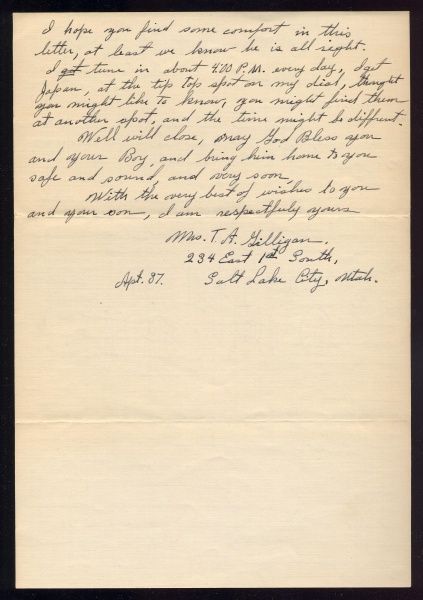 I hope you find some comfort in this
letter, at least we know he is all right.
I get tune in about 4:00 P.M. every day, I get
Japan, at the tip top spot on my dial, thought
you might like to know, you might find them
at another spot, and the time might be different.
Well will close, may God Bless you
and your Boy, and bring him home to you
safe and sound, and very soon.
With the very best of wishes to you
and your son, I am respectfuly yours
Mrs. T. A. Gilligan.
234 East 1st South,
Apt. 37. Salt Lake City, Utah.